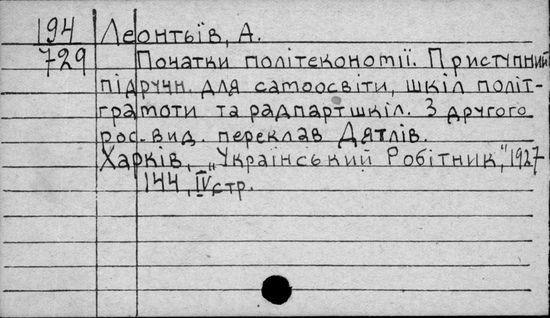 194 Леонтьїв, А.
729 Початки політекономії. Приступний
підручн. для самоосвіти, шкіл політ-
грамоти та радпартшкіл. З другого
рос. вид. переклав Дятлів.
Харків, „Український Робітник," 1927
144, IV стр.